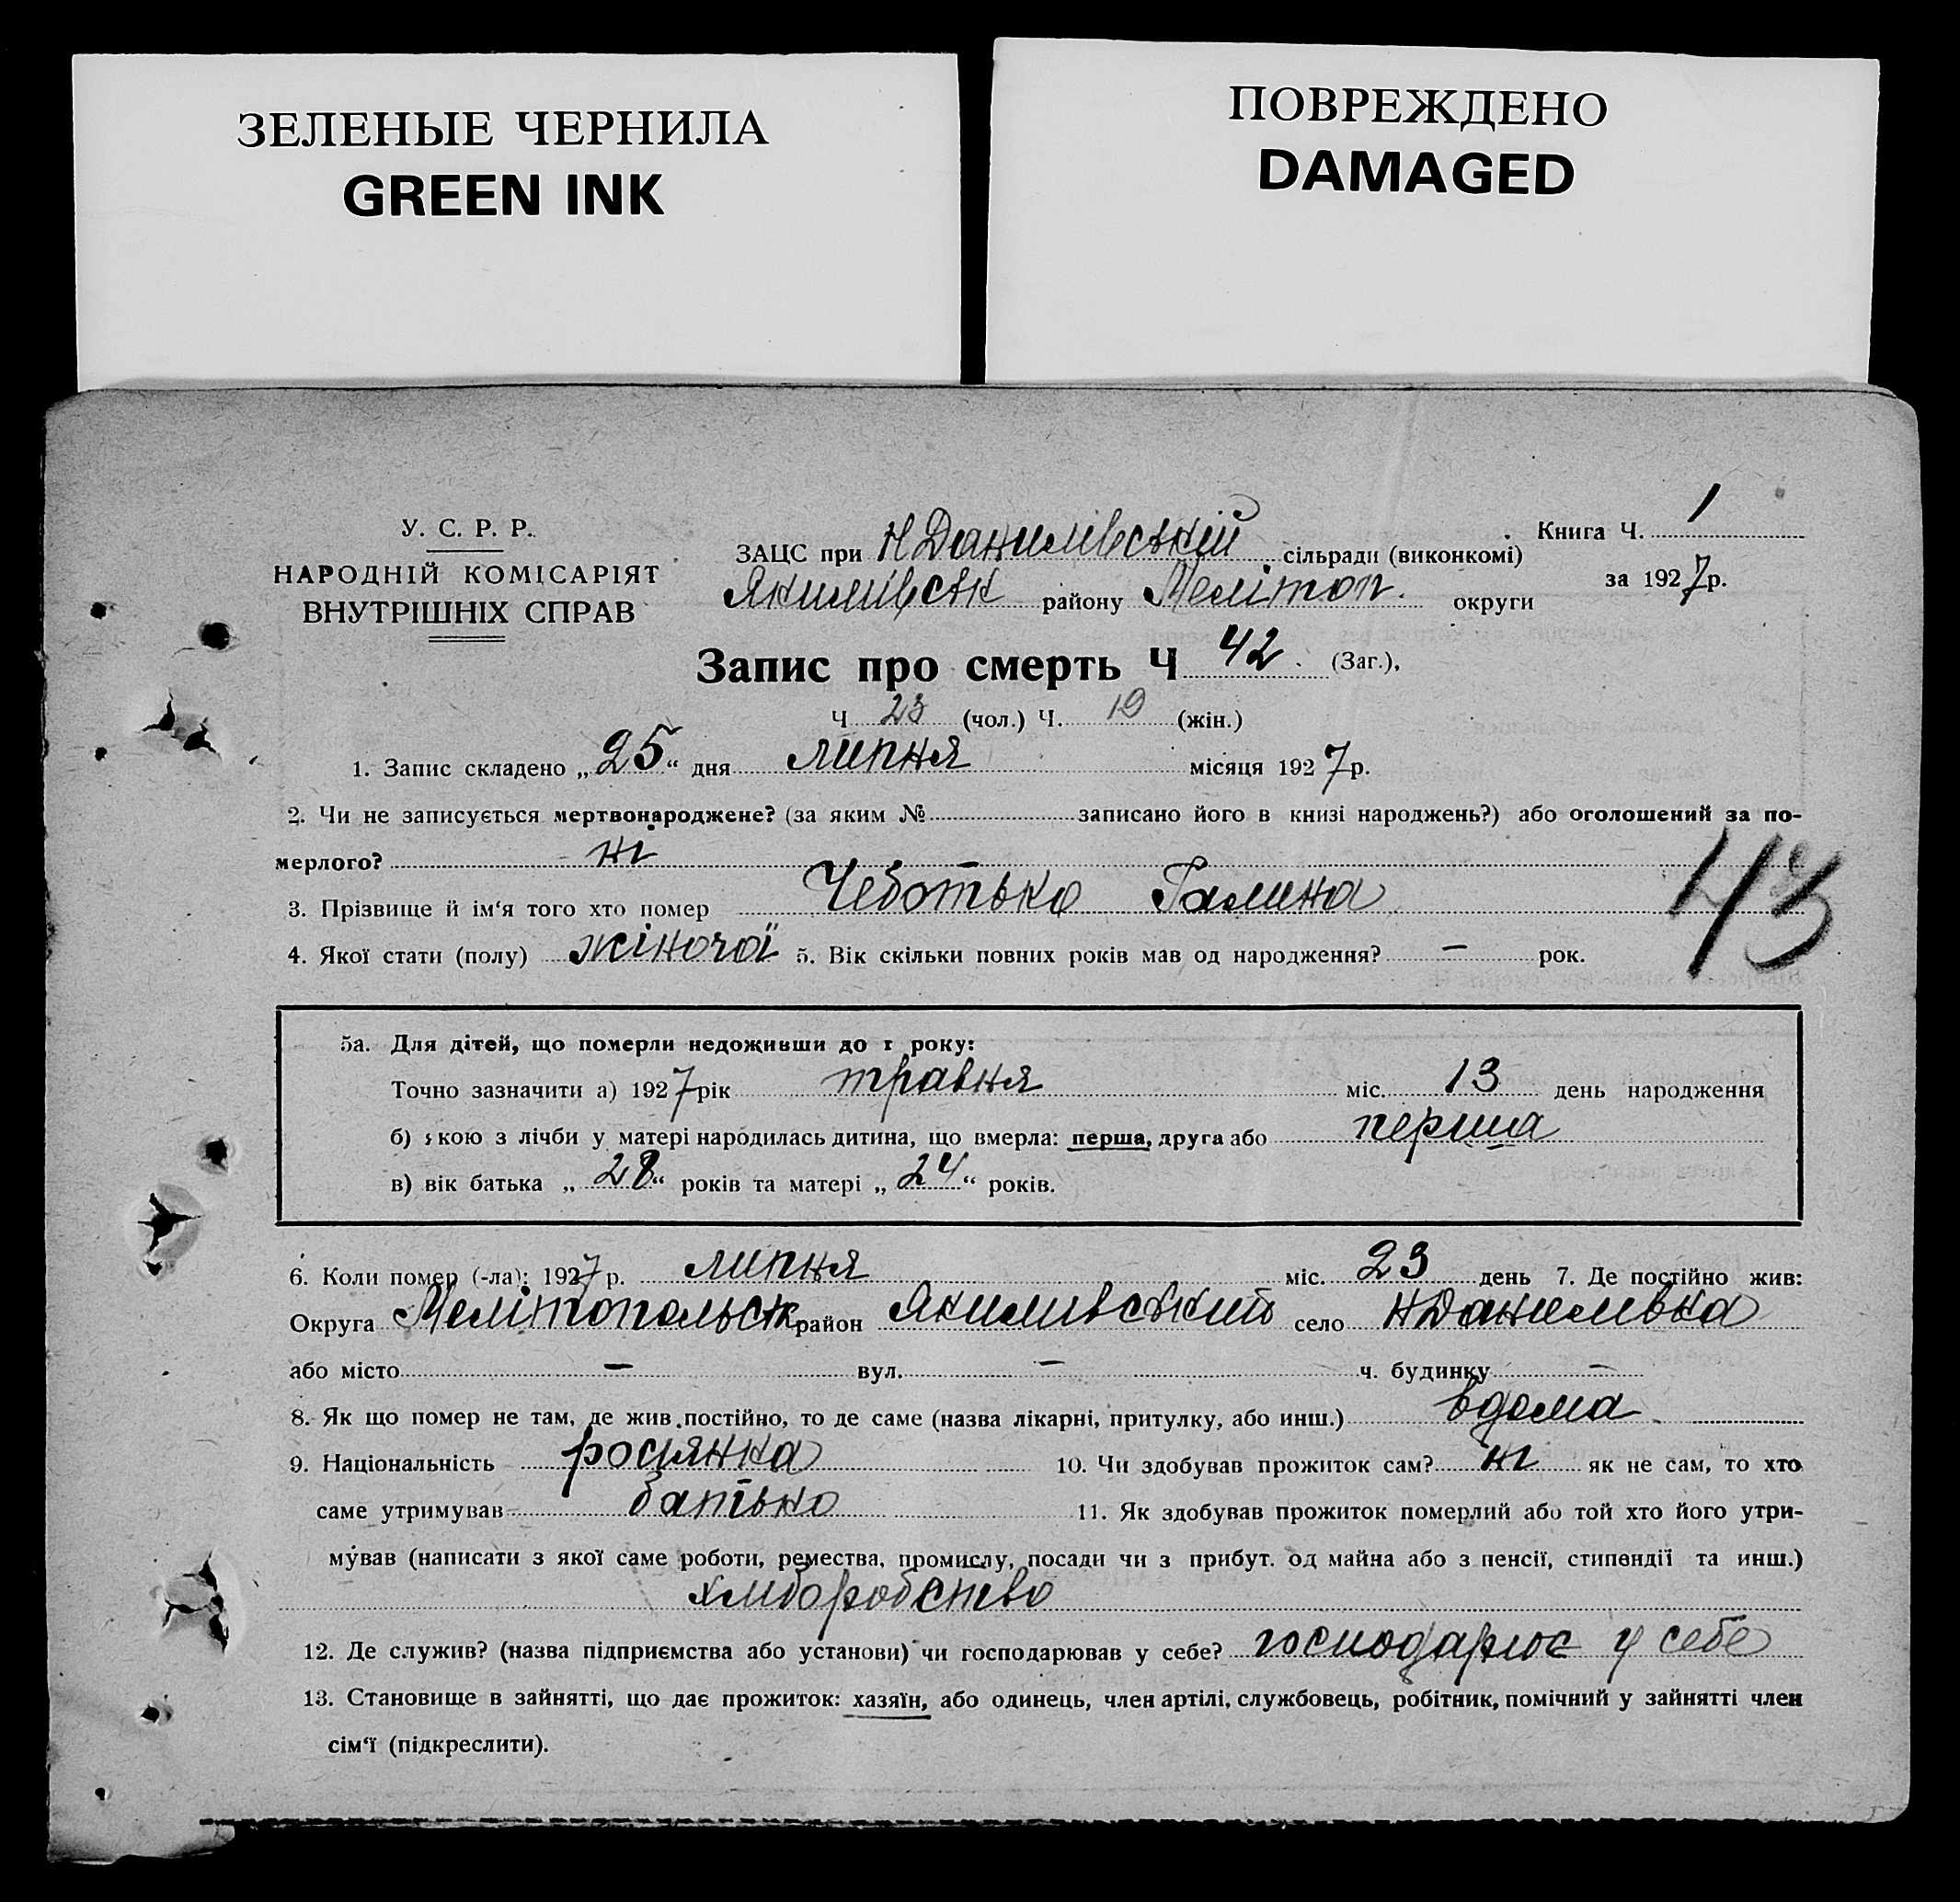 ЗЕЛЕНЫЕ ЧЕРНИЛА
GREEN INK
ПОВРЕЖДЕНО
DAMAGED
У. С. Р. Р.
НАРОДНІЙ КОМІСАРІЯТ
ВНУТРІШНІХ СПРАВ
ЗАЦС при Н Данилівській сільради (виконкомі)
Якимівськ району Мелітоп. округи
Книга Ч. 1
за 1927 р.
Запис про смерть Ч 42. (Заг.),
Ч 23 (чол.) Ч. 19 (жін.)
1. Запис складено „25“ дня липня місяця 1927 р.
2. Чи не записується мертвонароджене? (за яким № записано його в книзі народжень?) або оголошений за по-
мерлого? ні
43
3. Прізвище й ім‘я того хто помер Чеботько Галина
4. Якої стати (полу) жіночої 5. Вік скільки повних років мав од народження? — рок.
5а. Для дітей, що померли недоживши до 1 року:
Точно зазначити а) 1927 рік травня міс. 13 день народження
б) якою з лічби у матері народилась дитина, що вмерла: перша, друга або перша
в) вік батька „28“ років та матері „24“ років.
6. Коли помер (-ла): 1927 р. липня міс. 23 день 7. Де постійно жив:
Округа Мелітопольськ район Якимівський село Н Данилівка
або місто — вул. — ч. будинку —
8. Як що помер не там, де жив постійно, то де саме (назва лікарні, притулку, або инш.) вдома
9. Національність росіянка 10. Чи здобував прожиток сам? ні як не сам, то хто
саме утримував батько 11. Як здобував прожиток померлий або той хто його утри-
мував (написати з якої саме роботи, ремества, промислу, посади чи з прибут. од майна або з пенсії, стипендії та инш.)
хліборобство
12. Де служив? (назва підприємства або установи) чи господарював у себе? господарює у себе
13. Становище в зайнятті, що дає прожиток: хазяїн, або одинець, член артілі, службовець, робітник, помічний у зайнятті член
сім‘ї (підкреслити).